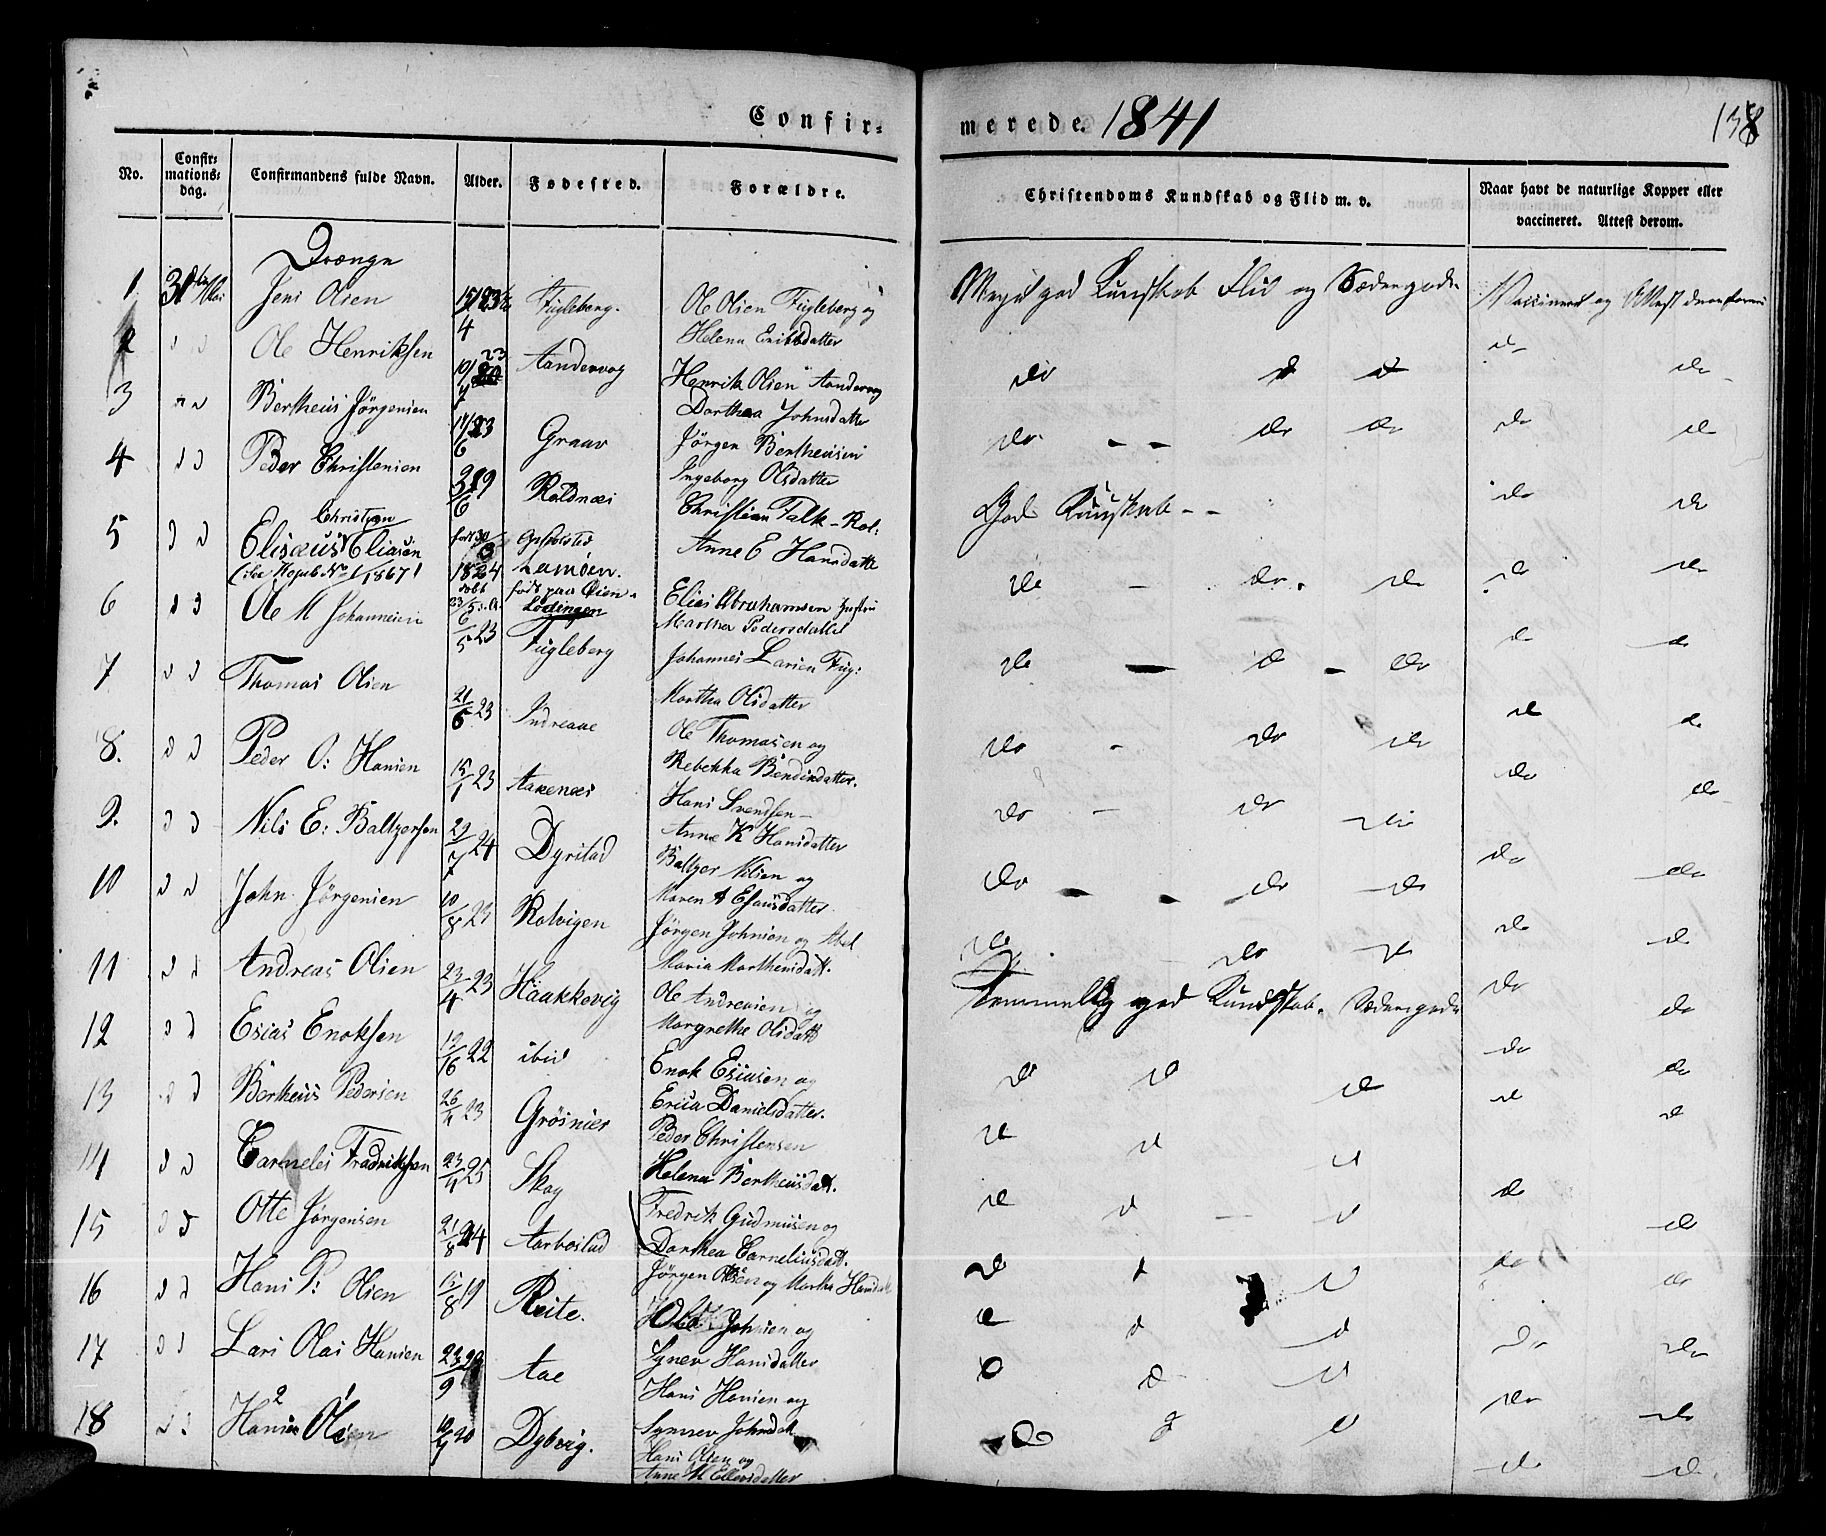 Confir-
merede. 1841
138
No.
Confir-
mations-
dag.
Confirmandens fulde Navn.
Alder.
Fødested.
Forældre.
Christendoms Kundskab og Flid m. v.
Naar havt de naturlige Kopper eller
vaccineret. Attest derom.
Drenge
1 Jens Olsen Fugleberg. Ole Olsen Fugleberg og
Helena Eriksdatter
Meget god Kundskab Flid og Sædergode
Vaccineret og Attest
2 Ole Henriksen Aandervog Henrik Olsen Aandervog
Dorthea Johnsdatter
do do
3 Bertheus Jörgensen 23/6 Graav Jörgen Bertheusen
Ingeborg Olsdatter
do do do do do
4 Peder Christensen Roldnæs Christian Falk - Rol:
Anne E Hansdatter
God Kundskab - - do do
5 Christian
Elisæus Eliasen 1824 Lamöen.
födt paa Öien
Lødingen
Elias Abrahamsen
Martha Pedersdatter
do do do do do
6 Ole M Johannesen 6/5 23 Fugleberg Johannes Larsen Fug:
Martha Olsdatter
do do do do do
7 Thomas Olsen 21/6 23 Indreaae Ole Thomasen og
Rebekka Bendixdatter.
do do do do do
8. Peder O: Hansen 15/1 23 Aakenæs Hans Svendsen -
Anne K Hansdatter
do do do do do
9. Nils E: Baltzersen 29/7 24 Dyrstad Baltzer Nilsen og
Maren A Esaisdatter
do do do do do
10 John Jörgensen 10/8 23 Rotvigen Jörgen Johnsen og Abel
Maria Marthensdatt.
do do do do do
11 Andreas Olsen 23/4 23 Haakkovig Ole Andreasen og
Margrethe Olsdatt
Temmelig god Kundskab. Sædergode do do
12 Esias Enoksen 22 ibid Enok Esiasen og
Erica Danielsdatter.
do do do do do
13 Bertheus Pedersen 26/4 23 Grösnæs Peder Christensen
Helena Bertheusdatt.
do do do do do
14 Carneles Fredriksen 23/4 25 Skog Fredrik Gudmusen og
Dorthea Carneliusdatt.
do do do do do
15 Otte Jörgensen 21/8 24 Aarbostad Jörgen Olsen og Martha Hansdatt
do do do do do
16 Hans P: Olsen 15/8 19 Reite. Ole Johnsen og
Synev Hansdatter
do do do do do
17 Lars Olai Hansen 23/9 Aae Hans Hansen og
Synnev Johnsdatt
do do do do do
18 Hans Olsen 20 Dybvig. Hans Olsen og
Anne M Ellersdatter
do do do do do